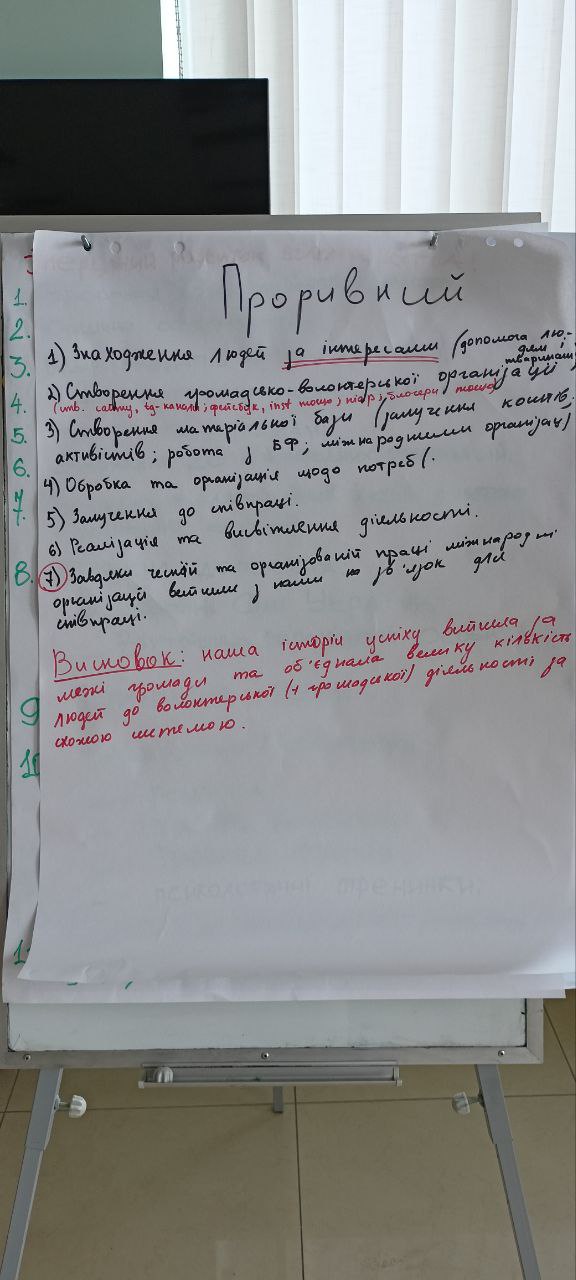 Проривний
1) Знаходження людей за інтересами (допомога лю-
дям і
тваринам)
2) Створення громадсько-волонтерської організації
(ств. сайту, tg-канали; фейсбук, inst тощо; піар; блогери тощо)
3) Створення матеріальної бази (залучення коштів,
активістів; робота з БФ; міжнародними організац.)
4) Обробка та організація щодо потреб/.
5) Залучення до співпраці.
6) Реалізація та висвітлення діяльності.
7) Завдяки чесній та організованій праці міжнародні
організації вийшли з нами на зв'язок для
співпраці.
Висновок: наша історія успіху вийшла за
межі громади та об'єднала велику кількість
людей до волонтерської (+ громадської) діяльності за
схожою системою.
1.
2.
3.
4.
5.
6.
7.
8.
9
10